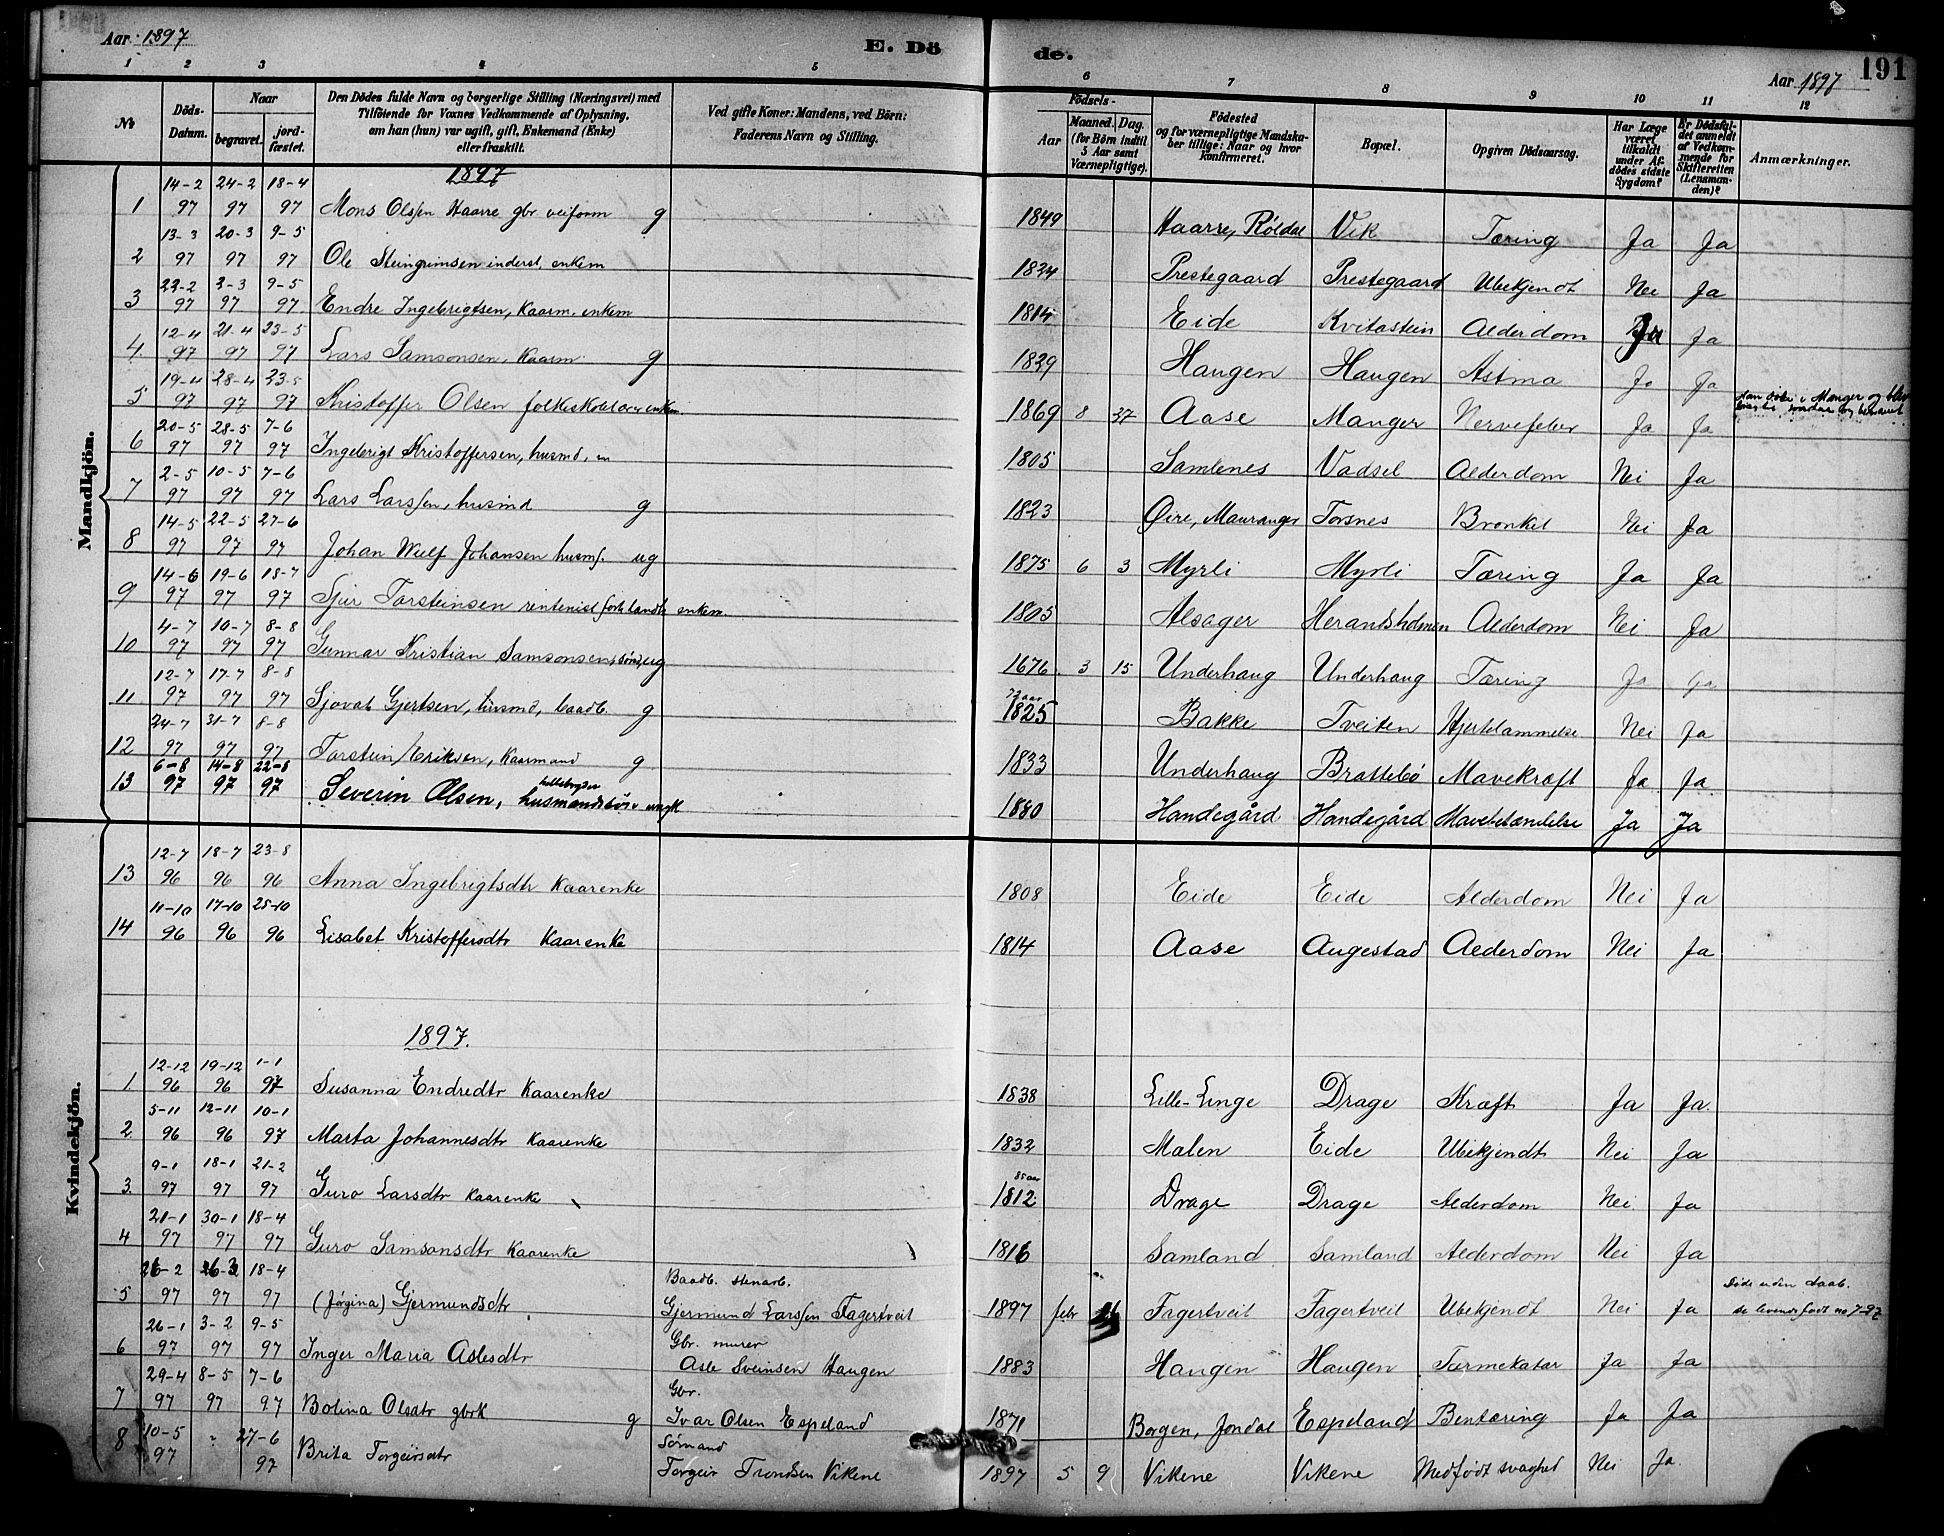 Aar 1897
E. Dö
de.
Aar 1897
191
1 2 3 4 5 6 7 8 9 10 11 12
No
Döds-Datum.
Naar
begravet.
jord-fæstet.
Den Dödes fulde Navn og borgerlige Stilling (Næringsvei) med
Tilföiende for Voxnes Vedkommende af Oplysning,
om han (hun) var ugift, gift, Enkemand (Enke)
eller fraskilt.
Ved gifte Koner: Mandens, ved Börn:
Faderens Navn og Stilling.
Födsels-
Aar
Maaned. Dag.
(for Börn indtil
5 Aar samt
Værnepligtige).
Födested
og for værnepligtige Mandska-
ber tillige: Naar og hvor
konfirmeret.
Bopæl.
Opgiven Dödsaarsag.
Har Læge
været
tilkaldt
under Af-
dödes sidste
Sygdom?
Er Dödsfal-
det anmeldt
af Vedkom-
mende for
Skifteretten
(Lensman-
den)?
Anmærkninger.
Mandkjön.
1897
1 14-2 97 24-2 97 18-4 97 Mons Olssen Haarre gbr veiform g 1849 Haarre, Röldal Vik Tæring Ja Ja
2 13-3 97 20-3 97 9-5 97 Ole Steingrimsen inderst, enkem 1824 Prestegaard Prestegaard Ubekjendt Nei Ja
3 22-2 97 2-3 97 9-5 97 Endre Ingebrigtsen, Kaarm. enkem 1814 Eide Kvitastein Alderdom Ja Ja
4 12-4 97 21-4 97 23-5 97 Lars Samsonsen, Kaarm. g 1829 Haugen Haugen Astma Ja Ja
5 19-4 97 28-4 97 23-5 97 Kristoffer Olsen 1869 8 Aase Manger Nervefeber Ja Ja
6 20-5 97 28-5 97 7-6 97 Ingebrigt Kristoffersen, husmd, 1805 Samlenes Vadsel Alderdom Nei Ja
7 2-5 97 10-5 97 7-6 97 Lars Larssen, husmd g 1823 Øire, Mauranger Torsnes Bronkit Nei Ja
8 14-5 97 22-5 97 27-6 97 Johan Wulf Johansen husms. ug 1875 6 3 Myrli Myrli Tæring Ja Ja
9 14-6 97 19-6 97 18-7 97 Sjur Torsteinsen rentenist enkem. 1805 Alsager Herandsholmen Alderdom Nei Ja
10 4-7 97 10-7 97 8-8 97 Gunnar Kristian Samsonsen, ug 1676 3 15 Underhaug Underhaug Tæring Ja Ja
11 12-7 97 17-7 97 8-8 97 Sjovat Gjertsen, husmd, baadb. g 72 aar 1825 Bakke Tveiten Hjertelammelse Nei Ja
12 24-7 97 31-7 97 8-8 97 Torstein Eriksen, Kaarmand g 1833 Underhaug Brattebø Mavekræft Ja Ja.
13 6-8 97 14-8 97 22-8 97 Severin Olsen, 1880 Handegård Handegård Mavebetændelse Ja Ja
Kvindekjön.
13 12-7 96 18-7 96 23-8 96 Anna Ingebrigtsdtr Kaarenke 1808 Eide Eide Alderdom Nei Ja
14 11-10 96 17-10 96 25-10 96 Lisabet Kristoffersdtr Kaarenke 1814 Aase Augestad Alderdom Nei Ja
1897.
1. 12-12 96 19-12 96 1-1 97 Susanna Endredtr Kaarenke 1838 Lille-Linge Drage Kræft Ja Ja.
2. 5-11 96 12-11 96 10-1 97 Marta Johannesdtr Kaarenke 1832 Malen Eide Ubekjendt Nei Ja
3. 9-1 97 18-1 97 21-2 97 Guro Larsdtr Kaarenke 85 aar 1812 Drage Drage Alderdom Nei Ja
4 21-1 97 30-1 97 18-4 97 Guro Samsonsdtr Kaarenke 1816 Samland Samland Alderdom Nei Ja
5 26-2 97 97 18-4 97 (Jørgina) Gjermundsdtr Baadb. stenarb. Gjermund Larssen Fagertveit 1897 febr Fagertveit Fagertveit Ubekjendt Nei Ja Døde uden daab. se levendefødt no 7-97
6 26-1 97 3-2 97 9-5 97 Inger Maria Aslesdtr Gbr. murer Asle Sveinsen Haugen 1883 Haugen Haugen Tarmekatar Ja Ja
7 29-4 97 8-5 97 7-6 97 Bolina Olsdtr gbrk g Gbr. Ivar Olsen Espeland 1871 Borgen, Jondal Espeland Bentæring Ja Ja
8 10-5 97 " 27-6 97 Brita Torgeirsdtr Sømand Torgeir Trondsen Vikene 1897 5 9 Vikene Vikene Medfødt svaghed Nei Ja.